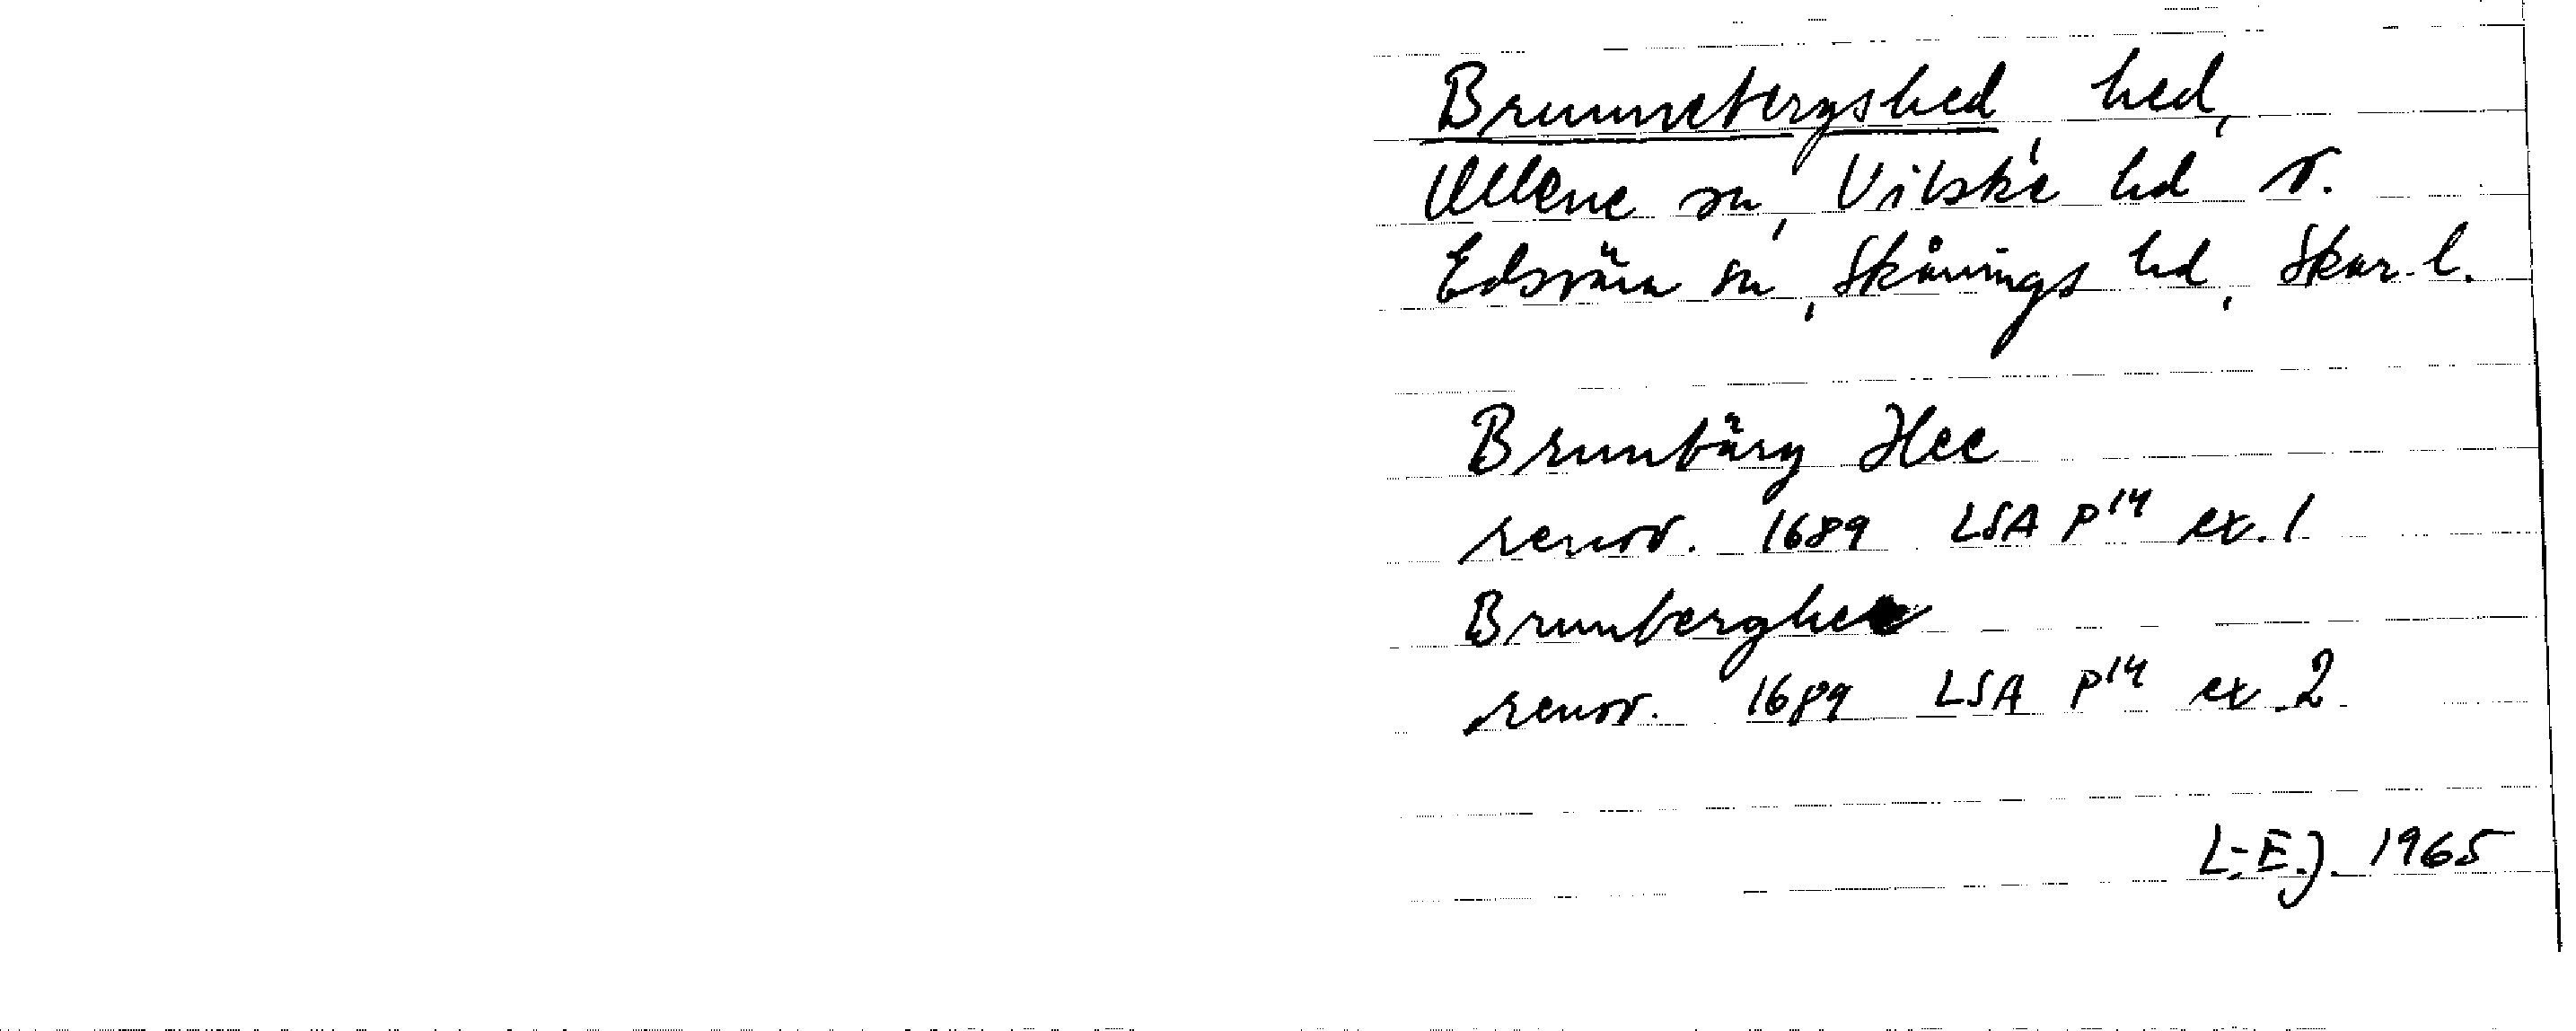 Brunnebergshed, hed,
Ullene sn, Vilske hd o.
Edsvära sn, Skånings hd, Skar. l.
Brunbärg Hee
renov. 1689 LSA P14 ex. 1
Brunberghee
renov. 1689 LSA P14 ex. 2
L-E.J. 1965